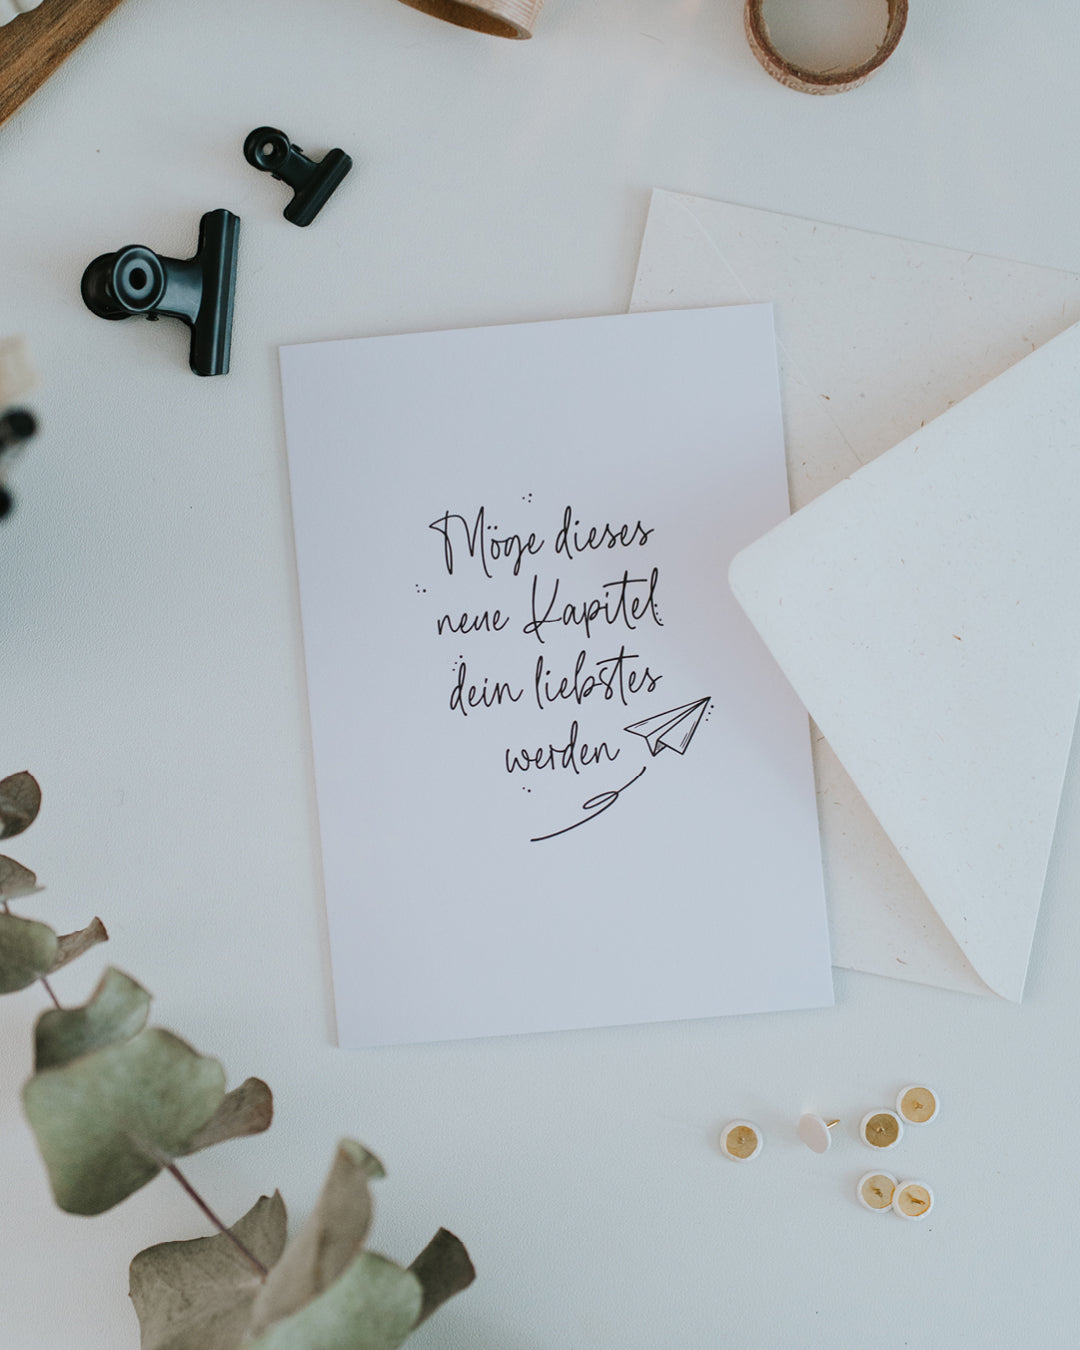 Möge dieses
neue Kapitel
dein liebstes
werden